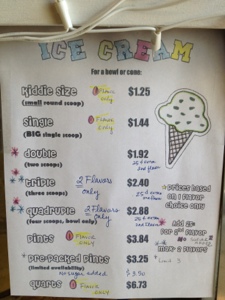 ICE CREAM
For a bowl or cone:
kiddie size $1.25
(small round scoop) only
single $1.44
(BIG single scoop) only
double $1.92
(two scoops)
triple 2 Flavors $2.40
(three scoops) only
quadruple 2 Flavors $2.88
(four scoops, bowl only) only
* prices based
on 1 flavor
choice only
* Add 25¢
For 2nd flavor
max- 2 flavors
pints Flavor only $3.84
pre-packed pints $3.25
(limited availability)
no sugar added $3.90
quarts Flavor only $6.73